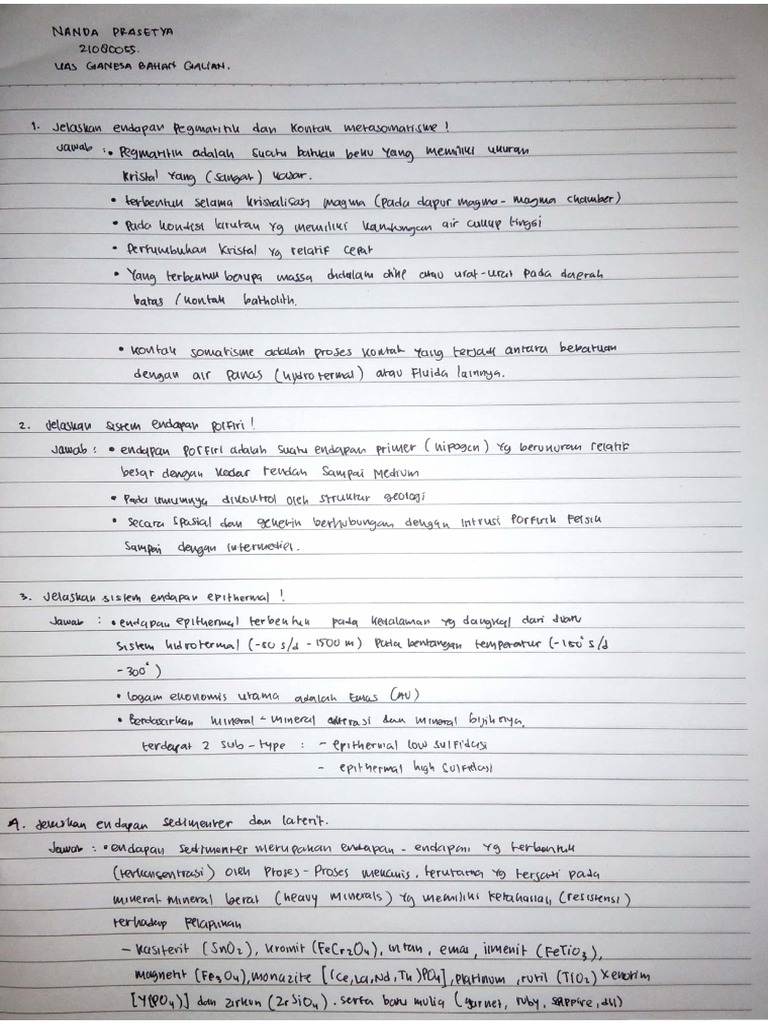 NANDA PRASETYA
21080055.
UAS GANESA BAHAN GALIAN.
1. Jelaskan endapan Pegmatitik dan Kontak metasomatisme !
Jawab : • Pegmatitik adalah suatu batuan beku yang memiliki ukuran
kristal yang (sangat) kasar.
• terbentuk selama kristalisasi magma (pada dapur magma - magma chamber)
• Pada kondisi larutan yg memiliki kandungan air cukup tinggi
• Pertumbuhan kristal yg relatif cepat
• Yang terbentuk berupa massa didalam dike atau urat-urat pada daerah
batas / kontak batholith.
• kontak somatisme adalah proses kontak yang terjadi antara bebatuan
dengan air panas (hydrotermal) atau Fluida lainnya.
2. Jelaskan sistem endapan Porfiri !
Jawab : • endapan Porfiri adalah suatu endapan primer (hipogen) yg berukuran relatif
besar dengan kadar rendah sampai Medium
• Pada umumnya dikontrol oleh struktur geologi
• Secara spasial dan genetik berhubungan dengan Intrusi Porfirik Felsik
Sampai dengan intermediet.
3. Jelaskan sistem endapan epithermal !
Jawab : • endapan epithermal terbentuk pada kedalaman yg dangkal dari suatu
sistem hidrotermal (-50 s/d -1500 m) pada bentangan temperatur (-150° s/d
-300°)
• logam ekonomis utama adalah Emas (AU)
• Berdasarkan mineral-mineral alterasi dan mineral bijihnya.
terdapat 2 sub-type : - epithermal low sulfidasi
- epithermal high sulfidasi
4. Jelaskan endapan sedimenter dan laterit.
Jawab : • endapan sedimenter merupakan endapan-endapan yg terbentuk
(terkonsentrasi) oleh Proses-Proses mekanis, terutama yg terjadi pada
mineral-mineral berat (heavy minerals) yg memiliki ketahanan (resistensi)
terhadap pelapukan
- Kasiterit (SnO2), kromit (FeCr2O4), intan, emas, ilmenit (FeTiO3),
magnetit (Fe3O4), monazite [(Ce,La,Nd,Th)PO4], platinum, rutil (TiO2) Xenotim
[Y(PO4)] dan zirkon (ZrSiO4). serta batu mulia (garnet, ruby, sappire, dll)